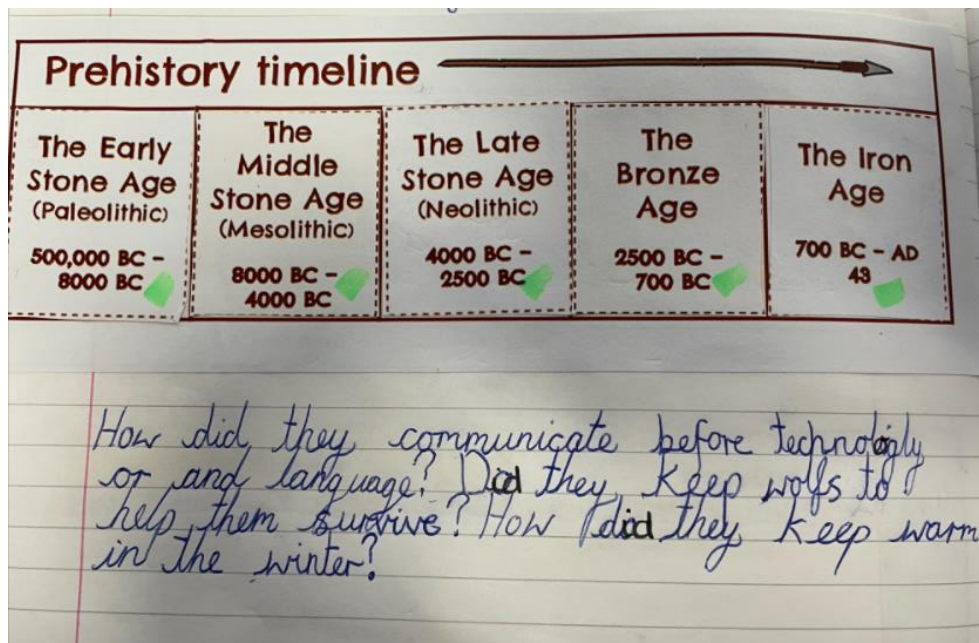 Prehistory timeline
The Early
Stone Age
(Paleolithic)
500,000 BC –
8000 BC
The
Middle
Stone Age
(Mesolithic)
8000 BC –
4000 BC
The Late
Stone Age
(Neolithic)
4000 BC –
2500 BC
The
Bronze
Age
2500 BC –
700 BC
The Iron
Age
700 BC – AD
43
How did they communicate before technologly
or and language? Did they keep wolfs to
help them survive? How did they keep warm
in the winter?